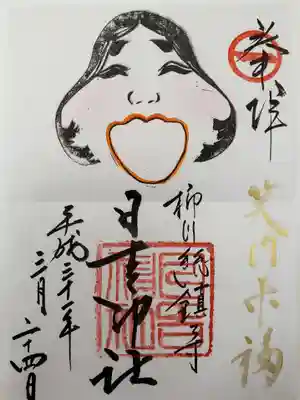 奉拝
笑門来福
柳川総鎮守
日吉神社
平成三十一年
三月二十四日